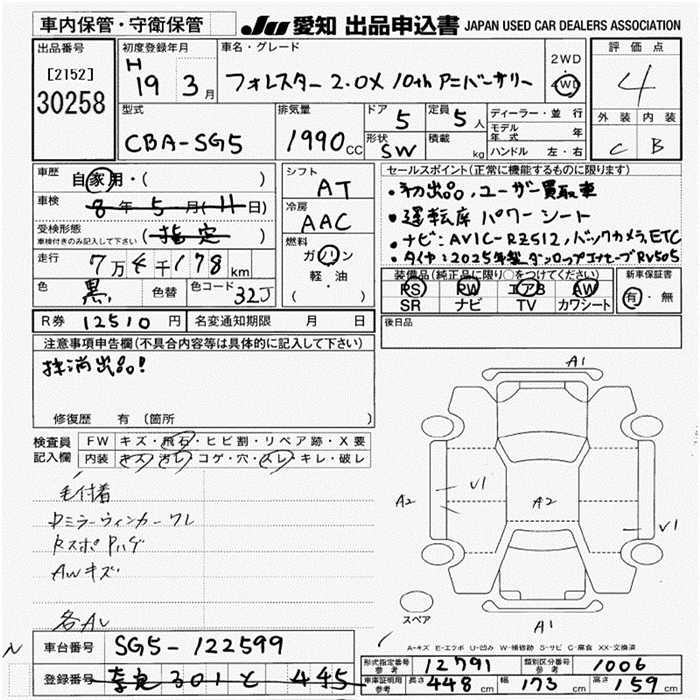 車内保管・守衛保管
JU 愛知 出品申込書 JAPAN USED CAR DEALERS ASSOCIATION
出品番号
[2152]
30258
初度登録年月
H 19 3月
車名・グレード
フォレスター 2.0X 10th アニバーサリー
2WD
4WD
評価点
4
外装 内装
C B
型式
CBA-SG5
排気量
1990 cc
ドア 5
定員 5人
形状 SW
積載 kg
ディーラー・並行
モデル年式 年
ハンドル 左・右
車歴
自家用・( )
車検
8年5月(11日)
受検形態
車検付きのみ記入して下さい
(指定)
走行
7万4千178km
色 黒
色替
色コード 32J
シフト
AT
冷房
AAC
燃料
ガソリン
軽・油
( )
セールスポイント(正常に機能するものに限ります)
・初出品,ユーザー買取車
・運転席パワーシート
・ナビ:AVIC-RZ512,バックカメラ,ETC
・タイヤ:2025年製ダンロップ RV505
装備品(純正品に限り○をつけてください)
PS PW エアB AW
SR ナビ TV カワシート
新車保証書
有・無
R券 12510円
名変通知期限 月 日
後日品
注意事項申告欄(不具合内容等は具体的に記入して下さい)
抹消出品!
修復歴 有(箇所 )
検査員記入欄
FW キズ・飛石・ヒビ割・リペア跡・X要
内装 キズ・汚レ・コゲ・穴・スレ・キレ・破レ
毛付着
Dミラーウィンカーワレ
RスポPハゲ
AWキズ
A1
A2
V1
A2
V1
スペア
A1
A-キズ E-エクボ U-凹み W-補修跡 S-サビ C-腐食 XX-交換済
車台番号 SG5-122599
登録番号 301 と 445
形式指定番号 参考 12791
類別区分番号 参考 1006
車庫証明用 参考 長さ 448cm 幅 173cm 高さ 159cm